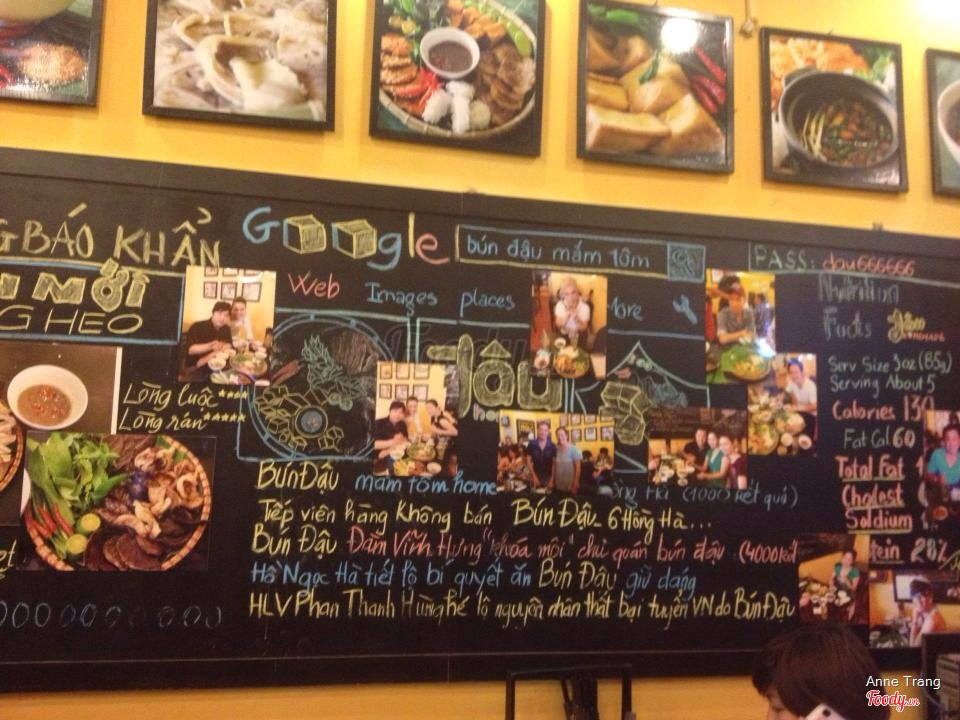 BÁO KHẨN
MỚI
G HEO
Lòng luộc****
Lòng rán*****
Google
bún đậu mắm tôm
Web Images places More
Đậu
Bún Đậu mắm tôm home
Hồng Hà (1000 kết quả)
Tiếp viên hàng không bán Bún Đậu 6 Hồng Hà...
Bún Đậu Đàm Vĩnh Hưng "khóa môi" chủ quán bún đậu (4000 kết
Hồ Ngọc Hà tiết lộ bí quyết ăn Bún Đậu giữ dáng
HLV Phan Thanh Hùng hé lộ nguyên nhân thất bại tuyển VN do Bún Đậu
PASS: dau666666
Nutrition
Facts Đậu
HOMEMADE
Serv Size 3oz (85g)
Serving About 5
Calories 130
Fat Cal 60
Total Fat
Cholest
Soldium
tein 28%
Anne Trang
Foody.vn